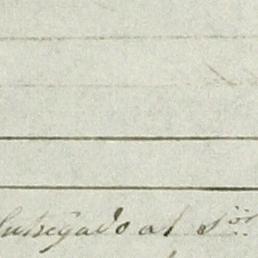 Entregado al Sor